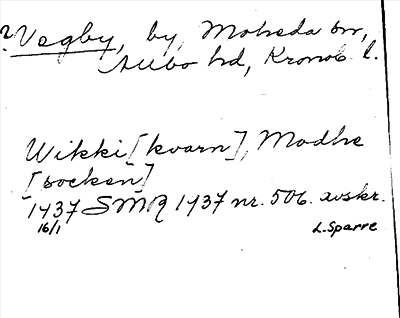 ? Vegby, by, Moheda sn,
Allbo hd, Kronob. l.
Wikki [kvarn], Modhe
[socken]
1437 SMR 1437 nr. 506. avskr.
16/1
L. Sparre